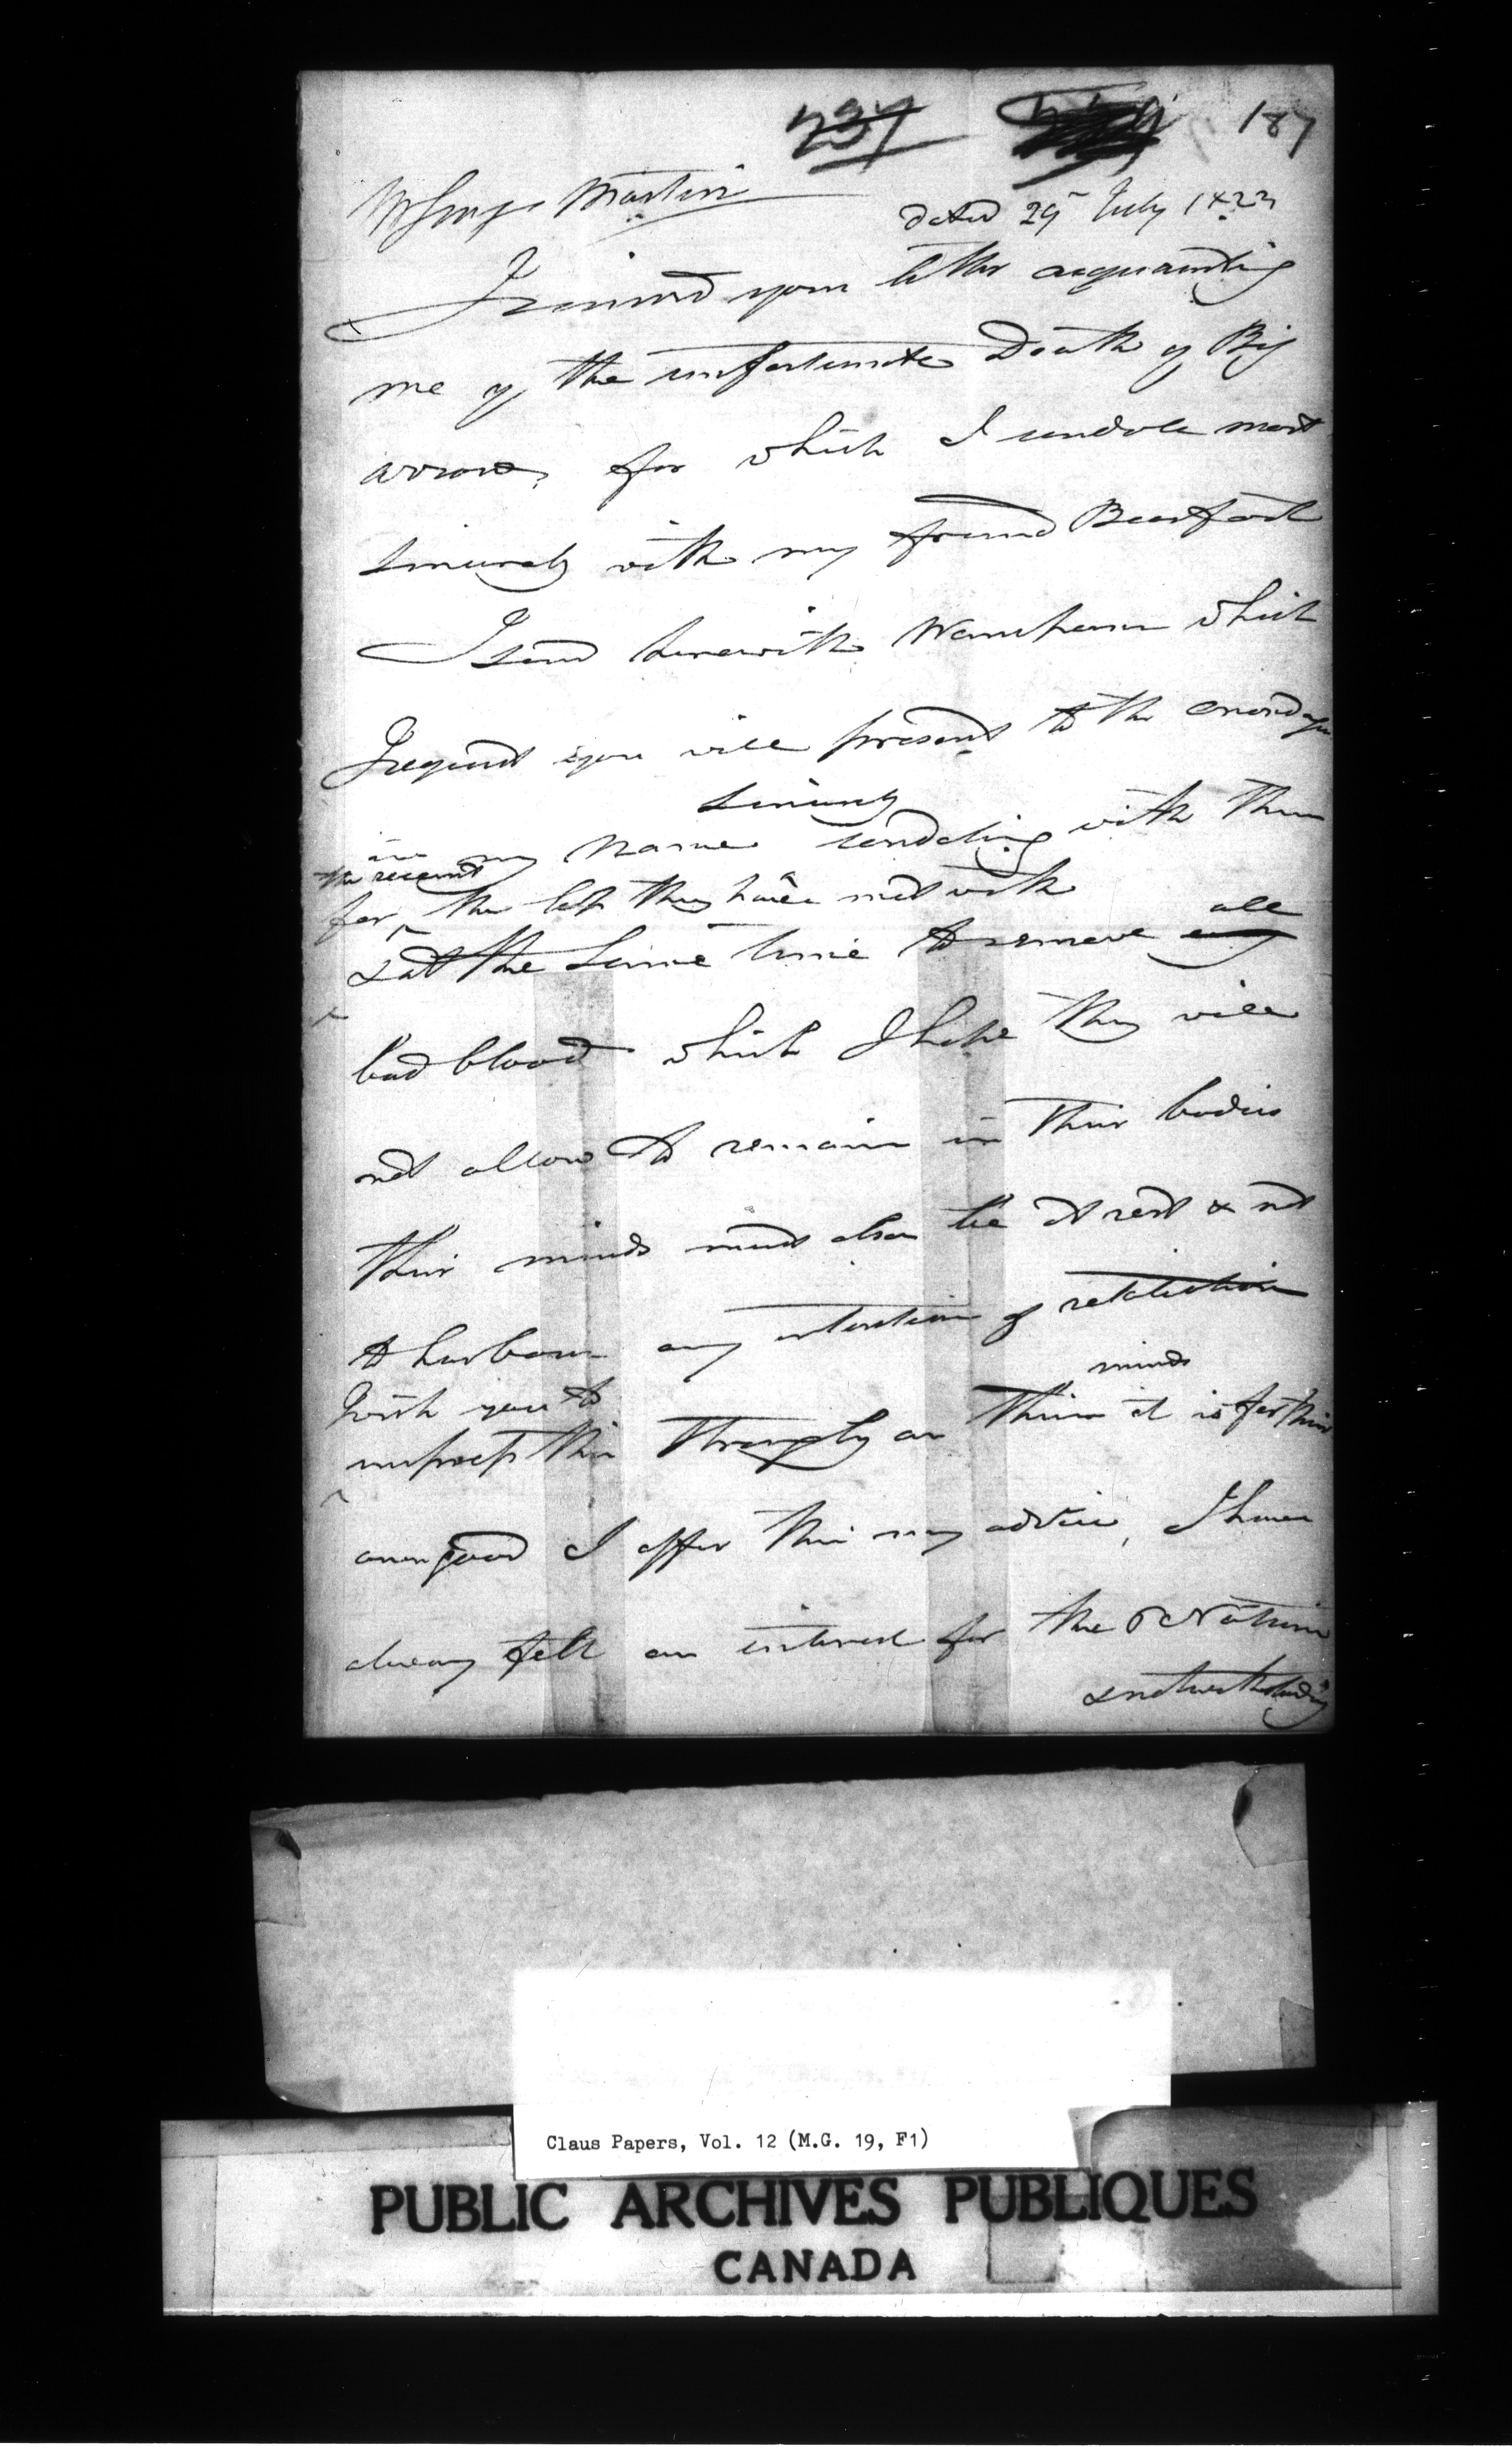 237 187
Mr George Martin
dated 29 July 1822
I received your letter acquainting
me of the unfortunate Death of Big
arrow, for which I condole most
sincerely with my friend Bearfoot
I send herewith Wampum which
I request you will present to the Onondagas
sincerely
in my Name condoling with them
the recent
for the loss they have met with
all
& at the same time to remove any
bad blood which I hope they will
not allow to remain in their bodies
their minds must also be at rest & not
to harbour any intention of retaliation
I wish you to minds
impress this strongly on their it is for their
own good I offer this my advice, I have
always felt an interest for the 6 Nations
& notwithstanding
Claus Papers, Vol. 12 (M.G. 19, F1)
PUBLIC ARCHIVES PUBLIQUES
CANADA